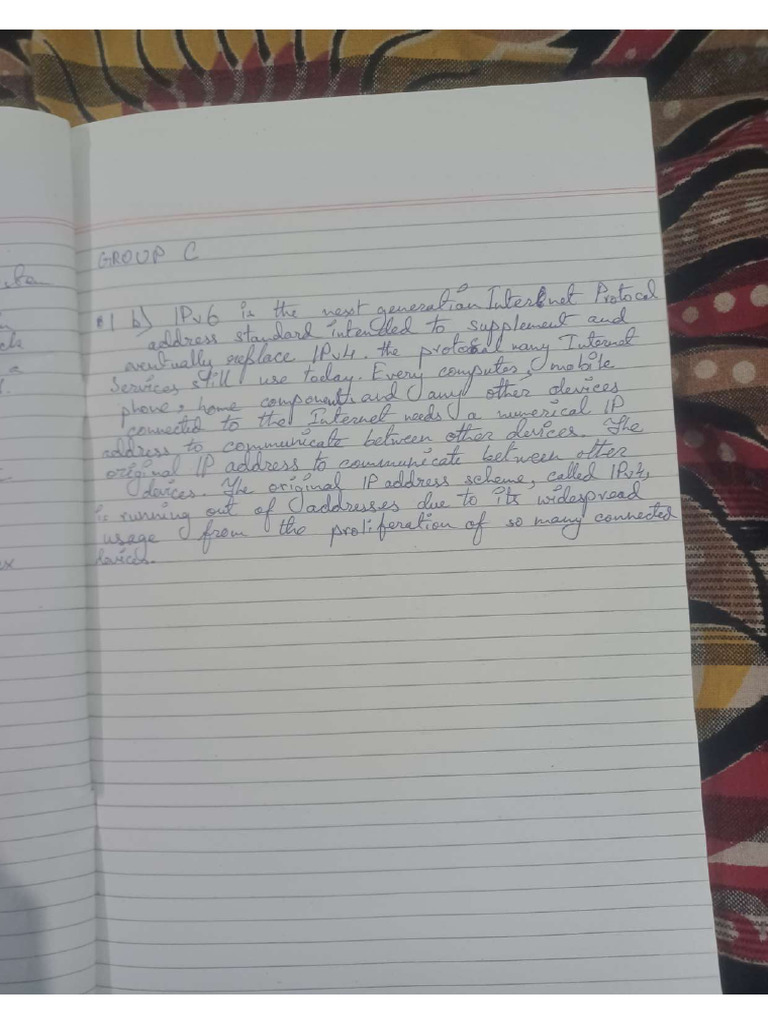 GROUP C
1 b) IPv6 is the next generation Internet Protocol
address standard intended to supplement and
eventually replace IPv4. the protocol many Internet
Services still use today. Every computer, mobile
phone, home components and any other devices
connected to the Internet needs a numerical IP
address to communicate between other devices. The
original IP address to communicate between other
devices. The original IP address scheme, called IPv4,
is running out of addresses due to its widespread
usage from the proliferation of so many connected
devices.